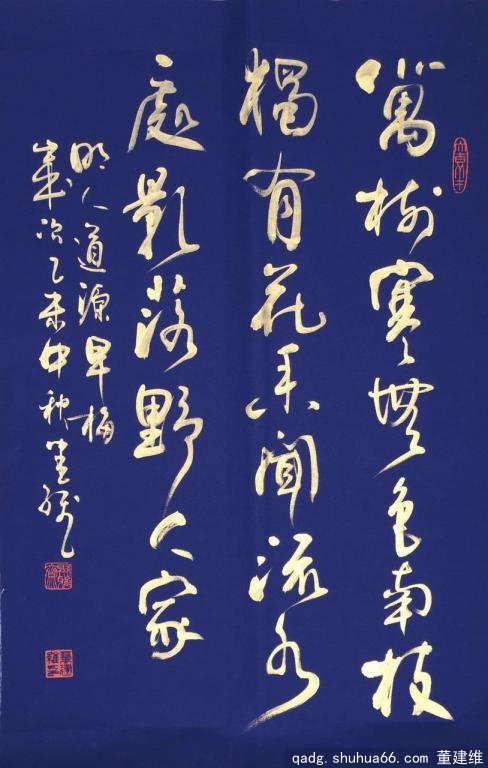 萬樹寒無色南枝
獨有花香聞流水
處影落野人家
明人道源早梅
歲次乙未中秋建維
qadg.shuhua66.com 董建维